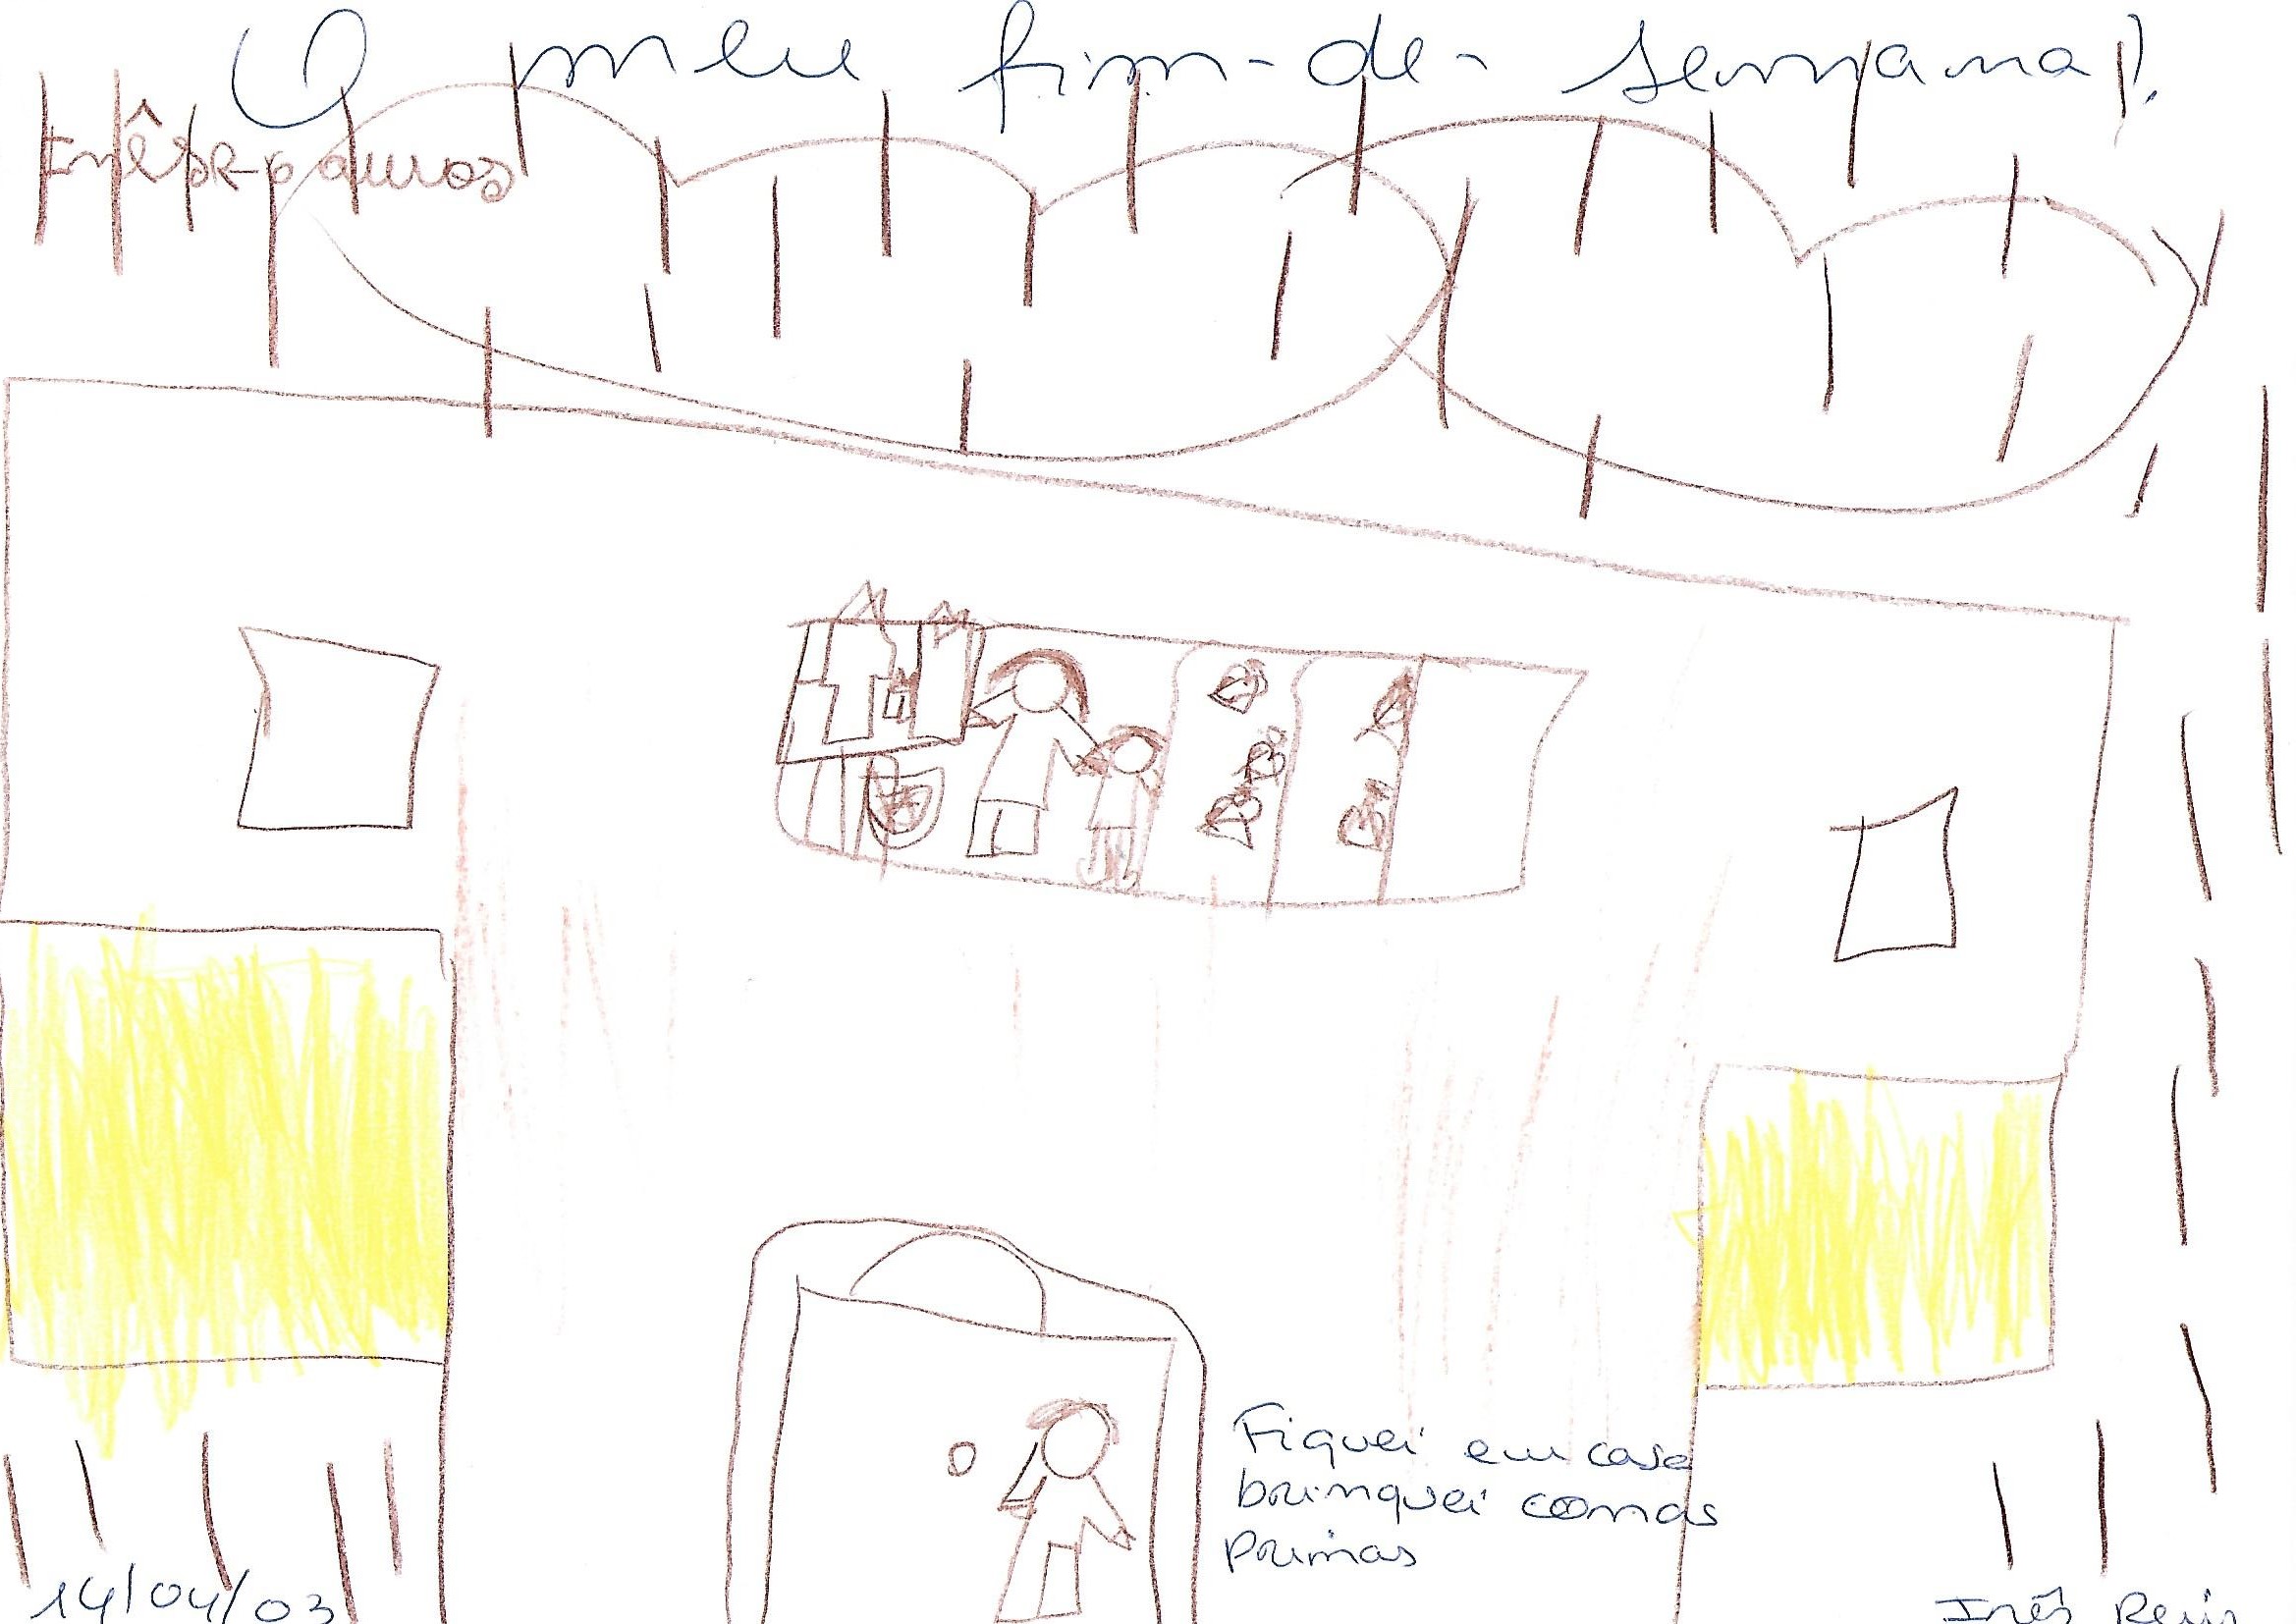 O meu fim-de-semana!
Inês
Fiquei em casa
brinquei com as
primas
14/04/03
Inês Reis